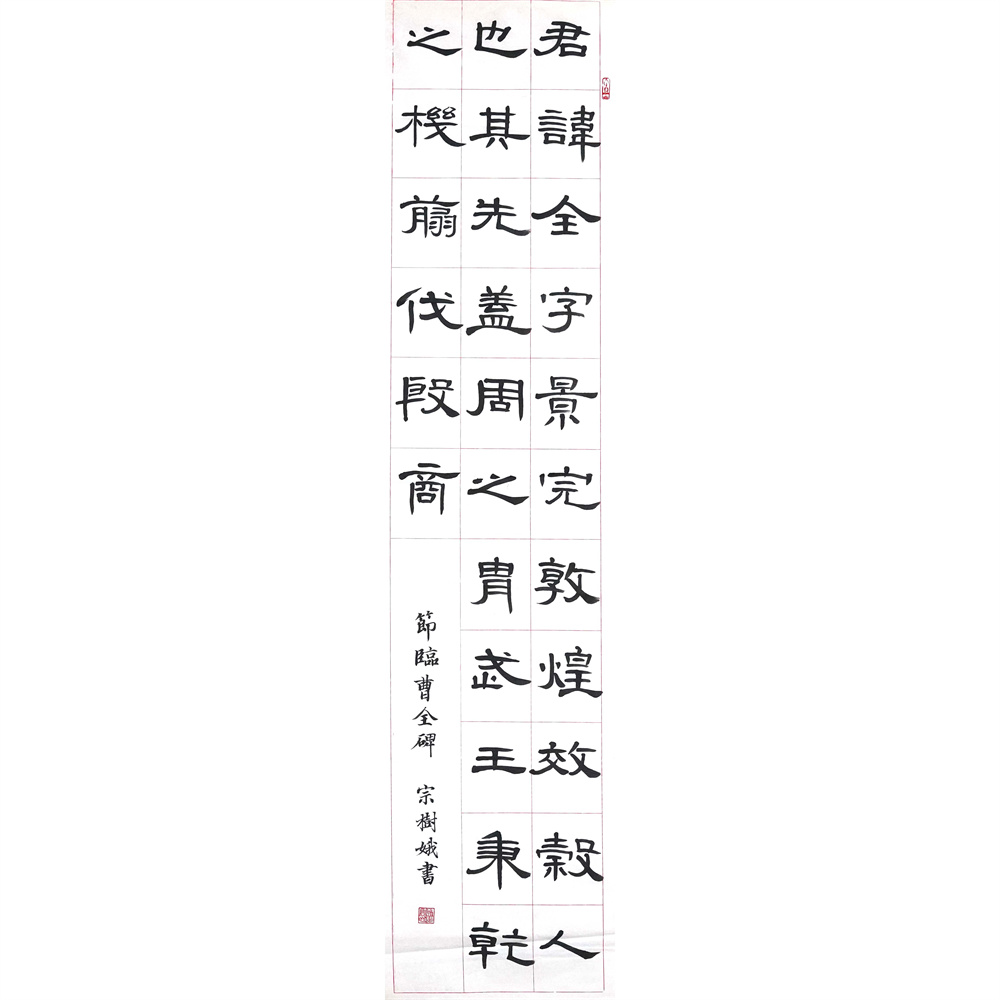 君諱全字景完敦煌效穀人
也其先蓋周之胄武王秉乾
之機翦伐殷商
節臨曹全碑 宗樹娥書